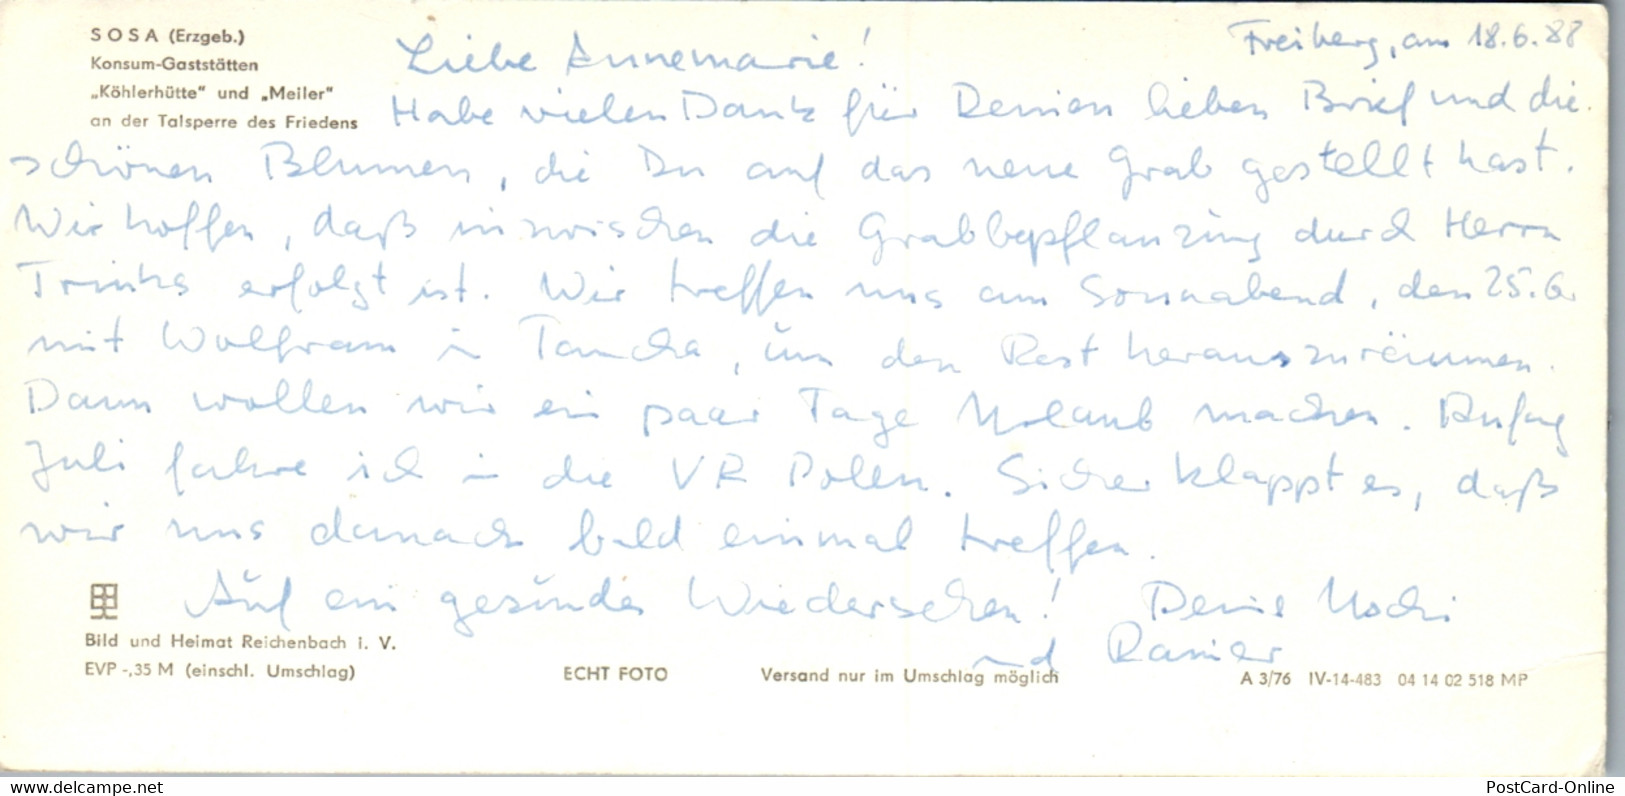 SOSA (Erzgeb.)
Konsum-Gaststätten
„Köhlerhütte“ und „Meiler“
an der Talsperre des Friedens
Freiberg, am 18.6.88
Liebe Annemarie!
Habe vielen Dank für Deinen lieben Brief und die
schönen Blumen, die Du auf das neue Grab gestellt hast.
Wir hoffen, daß inzwischen die Grabbepflanzung durch Herrn
erfolgt ist. Wir treffen uns am Sonnabend, den 25.6.
mit Wolfram in Taucha, um den Rest herauszuräumen.
Dann wollen wir ein paar Tage Urlaub machen. Anfang
Juli fahre ich in die VR Polen. Sicher klappt es, daß
wir uns danach bald einmal treffen.
Auf ein gesundes Wiedersehen! Deine
und Rainer
Bild und Heimat Reichenbach i. V.
EVP -,35 M (einschl. Umschlag)
ECHT FOTO
Versand nur im Umschlag möglich
A 3/76 IV-14-483 04 14 02 518 MP
www.delcampe.net
PostCard-Online